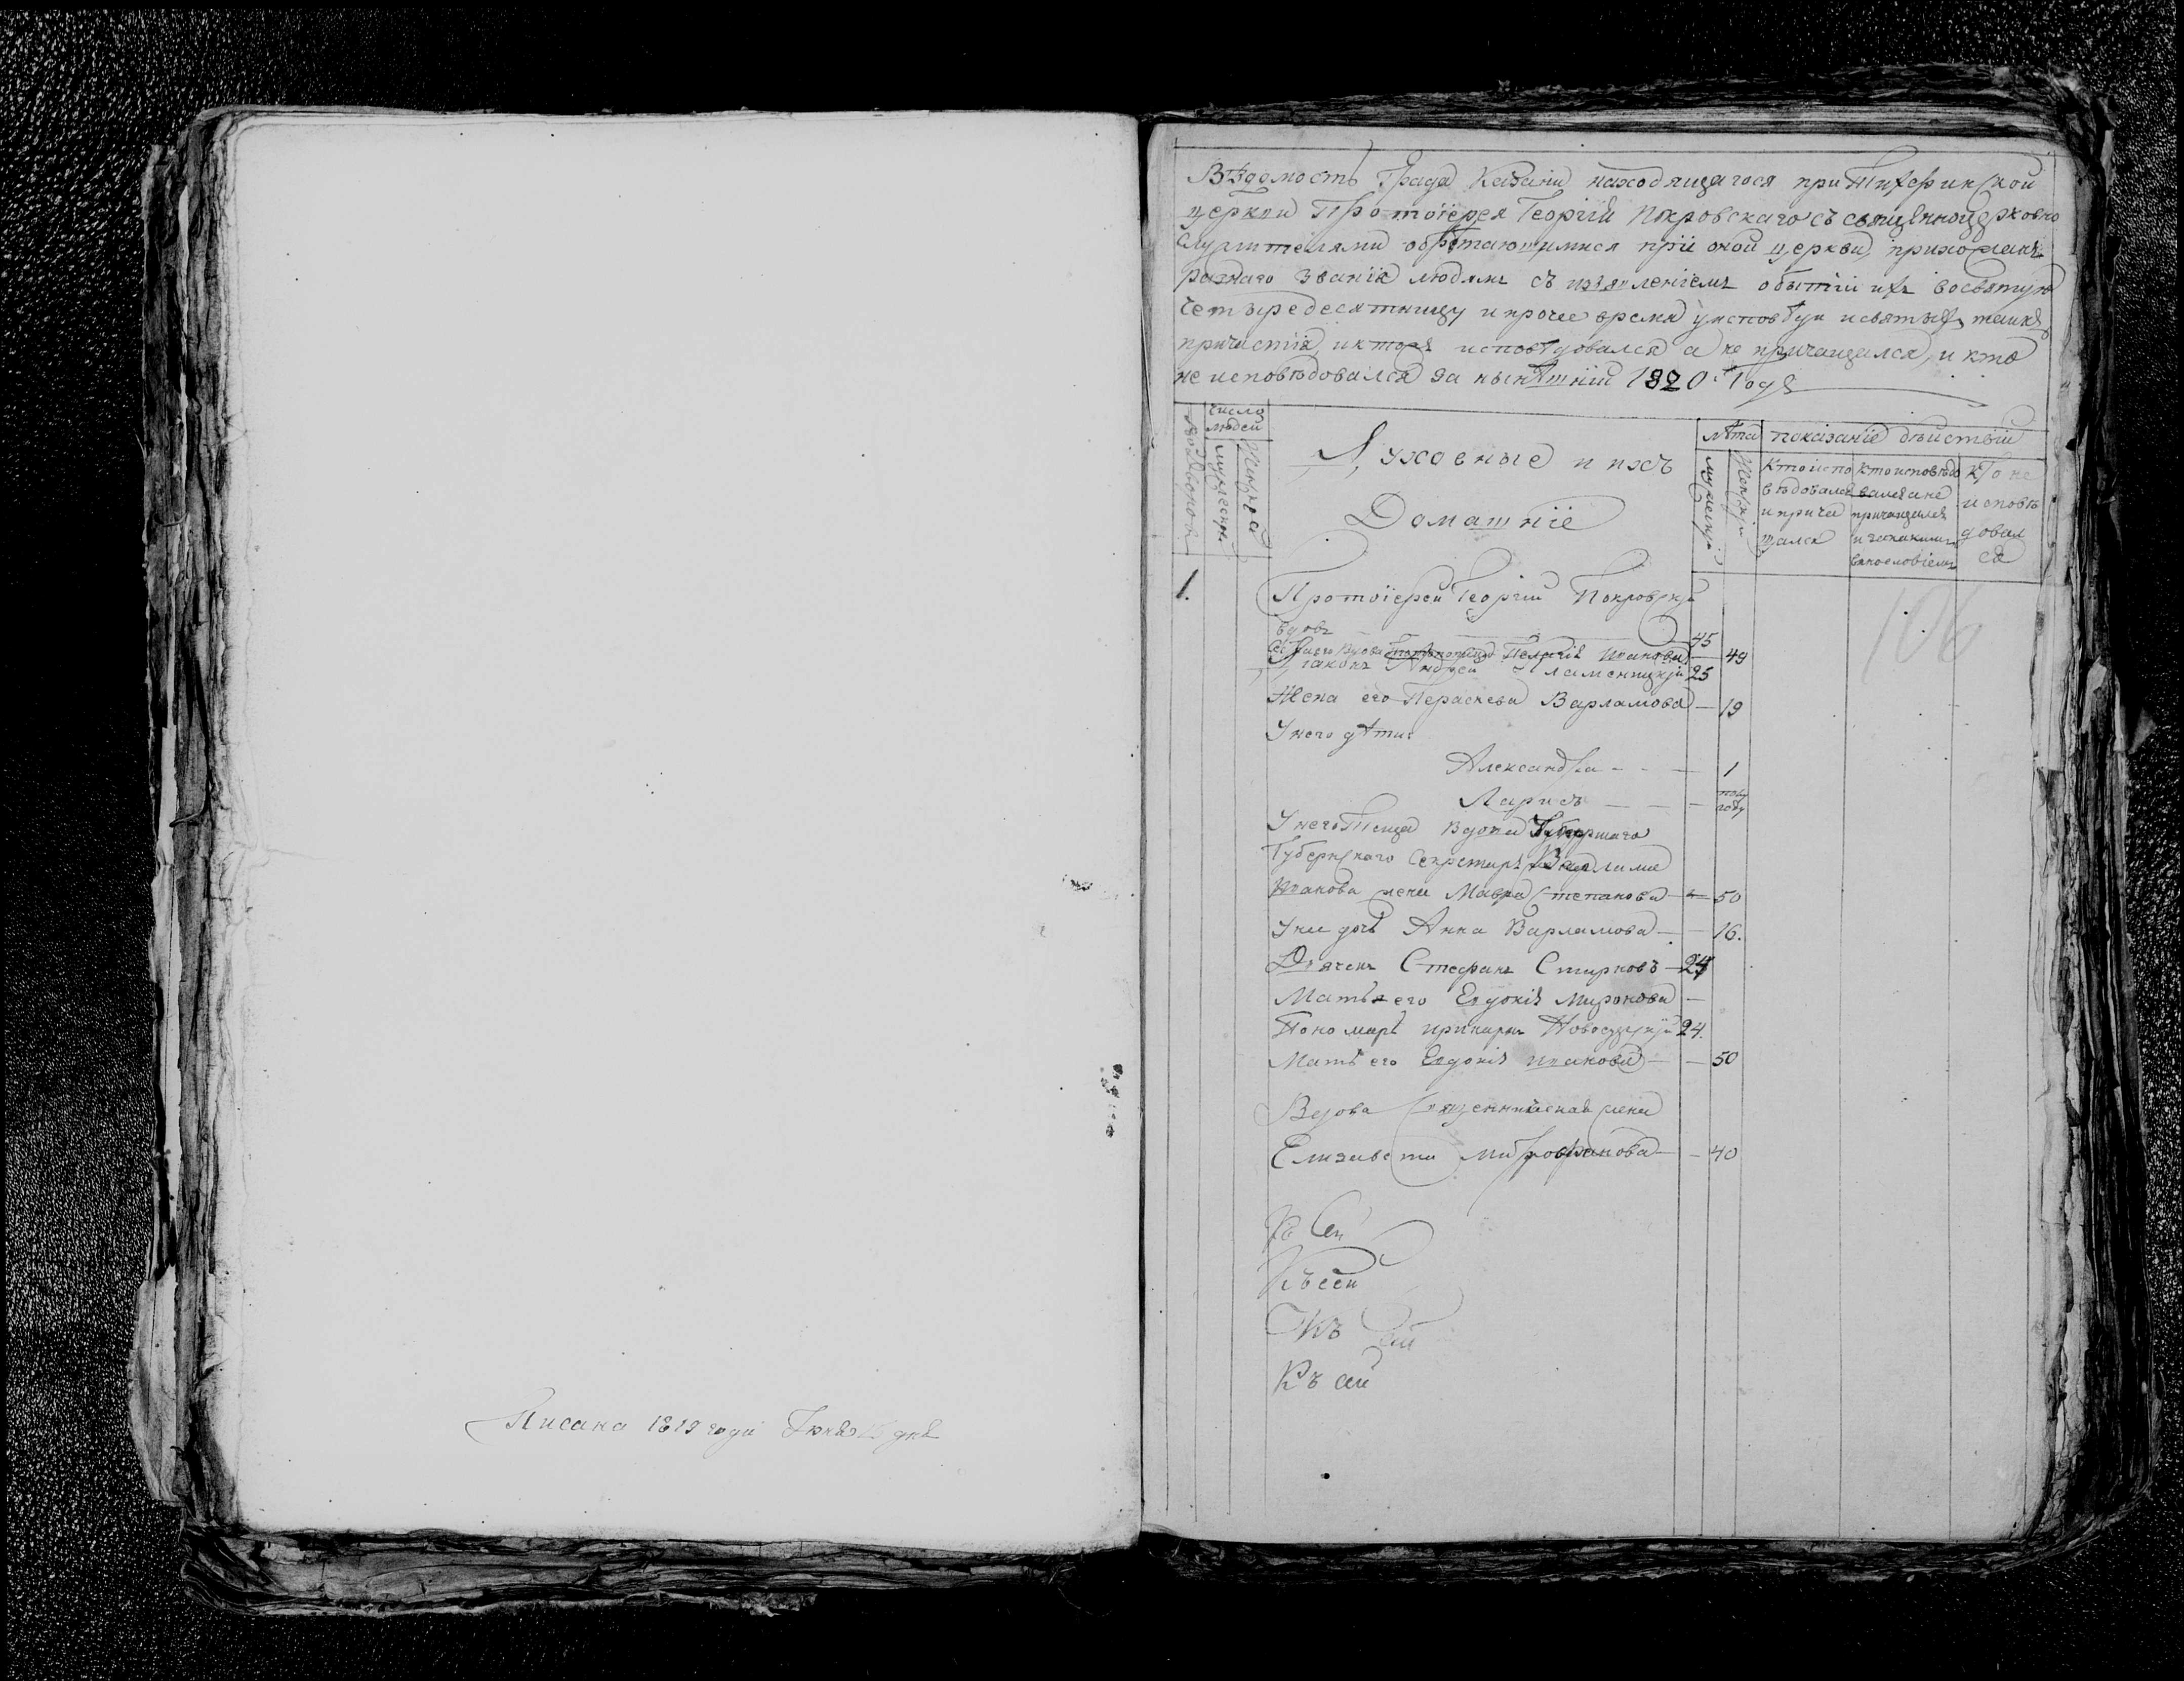 Писана 1819 года Июня 15 дня
Вѣдомость Града Казани находящагося при Тихфинской
церкви Протоіерея Георгія Покровскаго съ священноцерковно
служителями обрѣтающимися при оной церкви, прихожанъ
разнаго званія людямъ съ изъявленіемъ о бытіи ихъ восвятую
четыредесятницу и прочее время у исповѣди и святыхъ таинъ
причастія, и ктожъ исповѣдовался а не причащался, и кто
не исповѣдовался за нынѣшній 1820й Годъ
число
людей
мужеска
женска
Духовные и ихъ
Домашніе
лѣта
мужеска
женска
показаніе дѣйствій
Кто испо
вѣдовался
и прича
щался
Кто исповѣдо
вался а не
причащался
и за какимъ
винословіемъ
Кто не
исповѣ
довал
ся
1.
106
Протоіерей Георгій Покровскій
вдовъ 45
вдова Пелагія Иванова 49
Діаконъ Андрей 25
Жена его Параскева Варламова — 19
У него дѣти
Александра — 1
Лариса — пол года
У него Теща вдова Умершаго
Губернскаго Секретаря Варлама
Иванова жена Мавра Степанова — 50
У ней дочь Анна Варламова — 16.
Дьячекъ Стефанъ Смирновъ — 24
Мать его Евдокія Миронова —
Пономарь 24.
Мать его Евдокія Иванова — 50
Вдова Священническая жена
Елизавета Митрофанова — 40
Къ сей
Къ сей
Къ сей
Къ сей